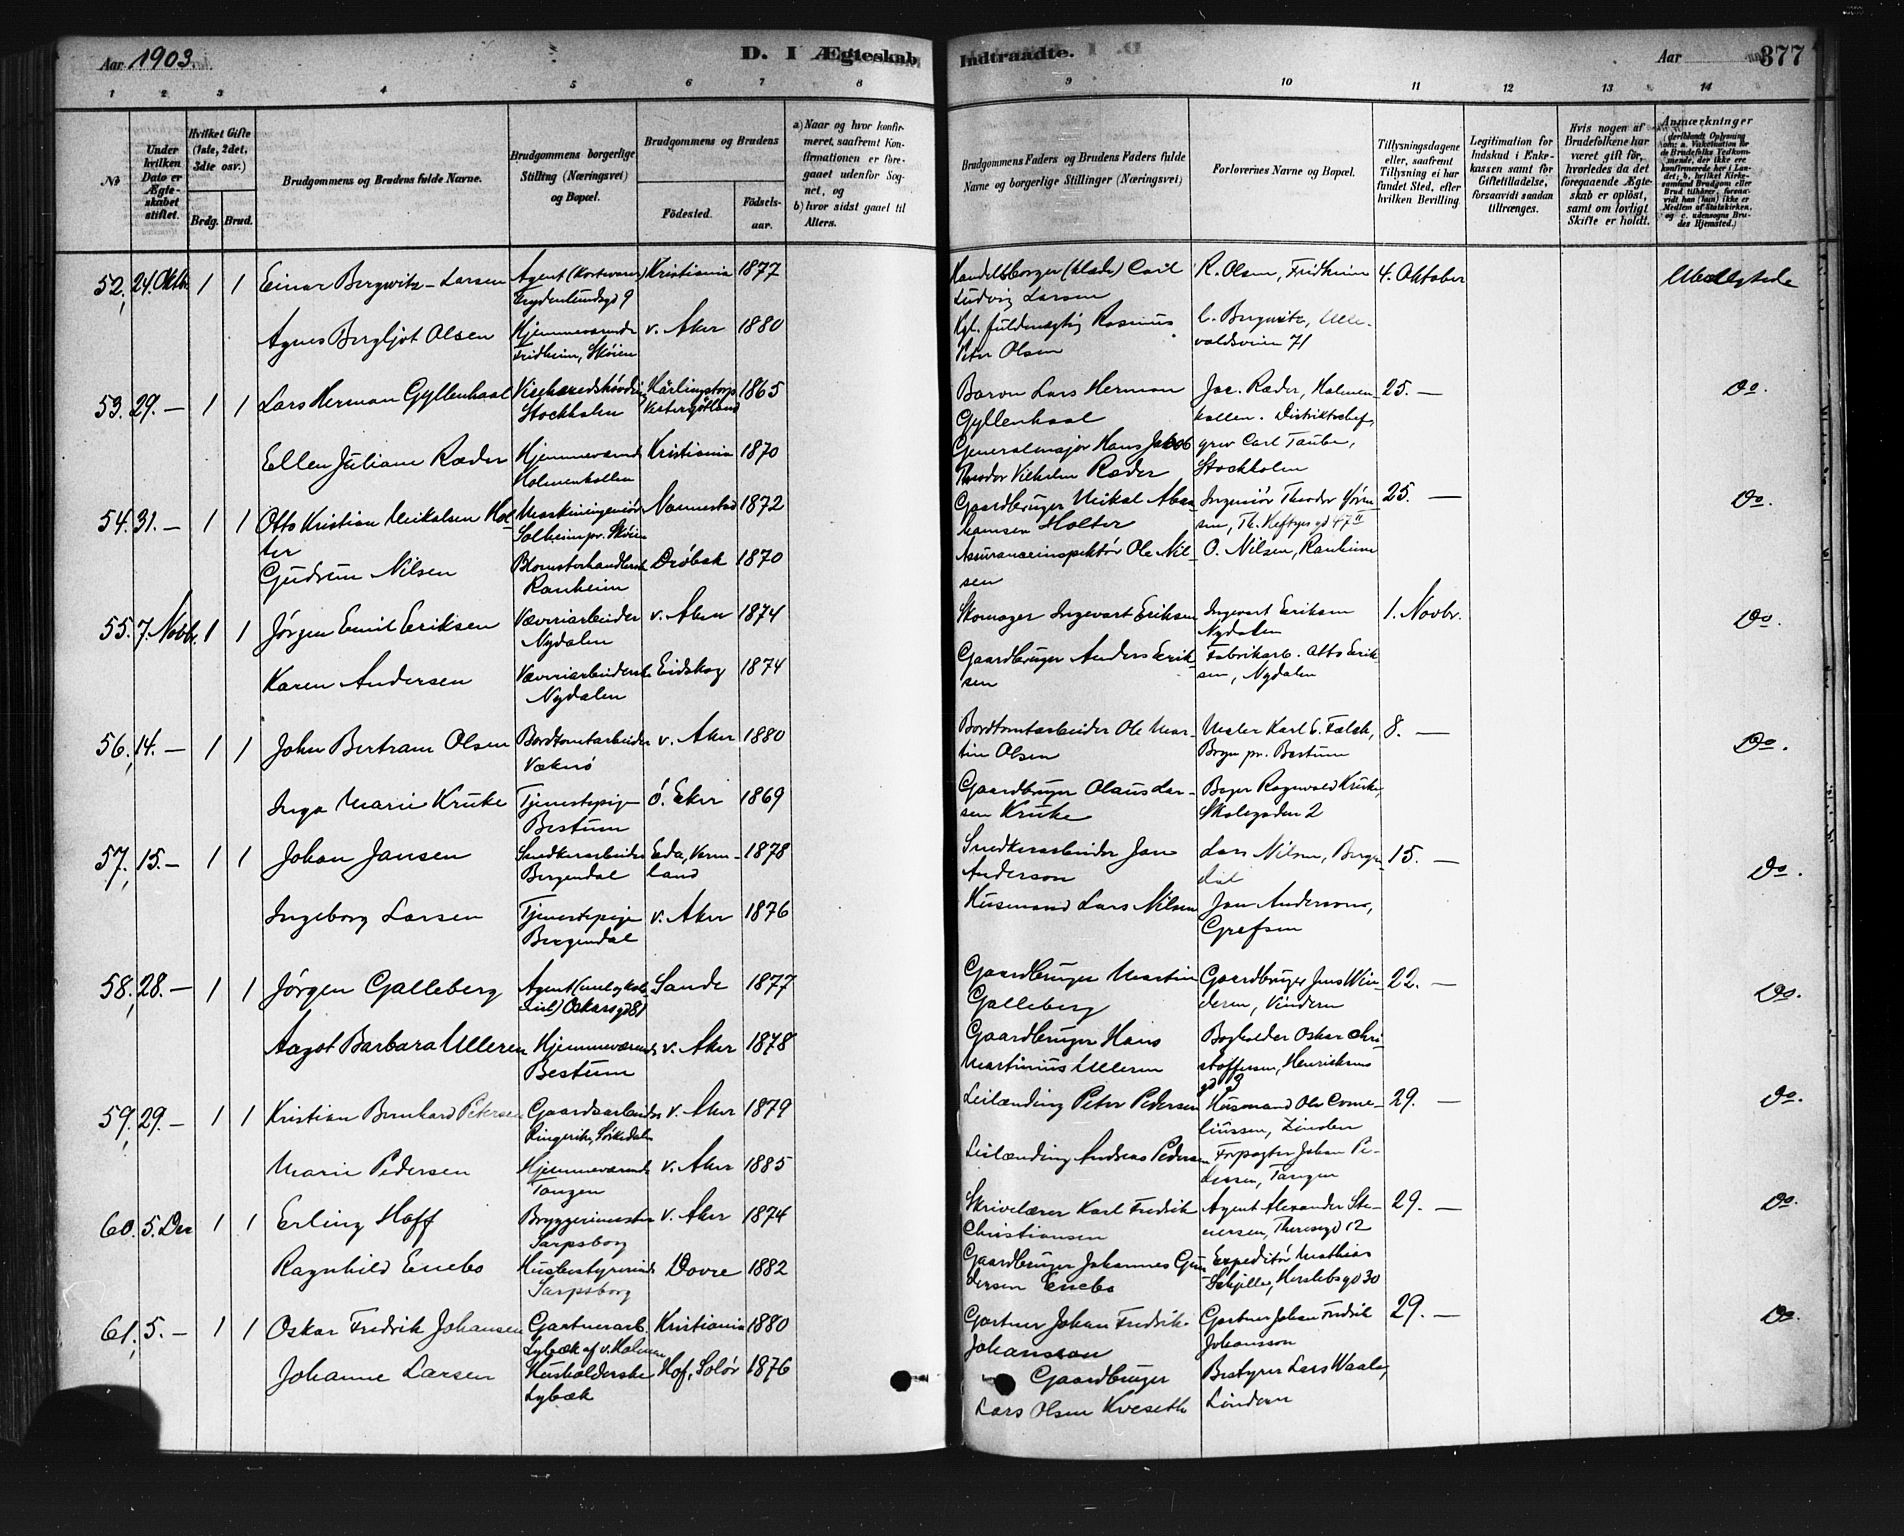 Aar 1903.
D. I Ægteskab Indtraadte.
Aar
377
1 2 3 4 5 6 7 8 9 10 11 12 13 14
No
Under hvilken Dato er Ægteskabet stiftet.
Hvilket Gifte (1ste, 2det, 3die osv.)
Brdg. Brud.
Brudgommens og Brudens fulde Navne.
Brudgommens borgerlige Stilling (Næringsvei) og Bopæl.
Brudgommens og Brudens
Födested.
Födselsaar.
a) Naar og hvor konfirmeret, saafremt Konfirmationen er foregaaet udenfor Sognet, og
b) hvor sidst gaaet til Alters.
Brudgommens Faders og Brudens Faders fulde Navne og borgerlige Stillinger (Næringsvei)
Forlovernes Navne og Bopæl.
Tillysningsdagene eller, saafremt Tillysning ei har fundet Sted, efter hvilken Bevilling
Legitimation for Indskud i Enkekassen samt for Giftetilladelse, forsaavidt saadan tiltrænges.
Hvis nogen af Brudefolkene har været gift før, hvorledes da det foregaaende Ægteskab er opløst, samt om lovligt Skifte er holdt.
Anmærkninger
52, 24. Oktb. 1 1 Einar Bergwitz-Larsen Agent (Kortevarer) Frydenlundsgd 9 Kristiania 1877 Handelsborger (Klæde) Carl Ludvig Larsen R. Olsen, Fridheim 4. Oktober
Agnes Bergljot Olsen Hjemmeværende Fridheim, Skøien v. Aker 1880 Kgl. fuldmægtig Rasmus Peter Olsen C. Bergwitz, Ullevoldsveien 71
53. 29. — 1 1 Lars Herman Gyllenhaal Stockholm 1865 Baron Lars Herman Gyllenhaal Jac. Ræder, Holmenkollen. Distriktschef, grev Carl Taube, Stockholm 25. — Do.
Ellen Juliane Ræder Hjemmeværende Holmenkollen Kristiania 1870 Generalmajor Hans Jakob Theodor Vilhelm Ræder
54. 31. — 1 1 Otto Kristian Mikalsen Holter Maskiningeniør Solheim pr. Skøien Nannestad 1872 Gaardbruger Mikal Abrahamsen Holter Ingeniør Theodor Heftyes gd 47 II 25. — Do.
Gudrun Nilsen Blomsterhandlerske Ranheim Drøbak 1870 Assuranceinspektør Ole Nilsen O. Nilsen, Ranheim
55. 7. Novbr. 1 1 Jørgen Emil Eriksen Væveriarbeider Nydalen v. Aker 1874 Skomager Ingevart Eriksen Ingevart Eriksen Nydalen 1. Novbr. Do.
Karen Andersen Væveriarbeiderske Nydalen Eidskog 1874 Gaardbruger Anders Eriksen Fabrikarb. Otto Eriksen, Nydalen
56, 14. — 1 1 John Bertram Olsen Bordtomtarbeider Vækerø v. Aker 1880 Bordtomtarbeider Ole Martin Olsen Maler Karl C. Falch, Bryn pr. Bestum 8. — Do.
Inga Marie Kruke Tjenestepige Bestum Ö. Eker 1869 Gaardbruger Olaus Larsen Kruke Bager Ragnvald Kruke, Skolegaden 2
57, 15. — 1 1 Johan Jansen Snedkerarbeider Bergendal Eda, Vermland 1878 Snedkerarbeider Jan Anderson Lars Nilsen, Bergendal 15. — Do.
Ingeborg Larsen Tjenestepige Bergendal v. Aker 1876 Husmand Lars Nilsen Jan Anderson, Grefsen
58, 28. — 1 1 Jørgen Galleberg Oskarsgd 81 Sande 1877 Gaardbruger Martin Galleberg Gaardbruger Jens Winderen, Vinderen 22. — Do.
Aagot Barbara Ulleren Hjemmeværende Bestum v. Aker 1878 Gaardbruger Hans Martinius Ulleren Bogholder Oskar Christoffersen, Henriksens gd 3
59, 29. — 1 1 Kristian Bernhard Petersen Gaardsarbeider Ringerike, Sørkedalen v. Aker 1879 Leilænding Peter Pedersen Husmand Ole Corneliussen, Zinober 29. — Do.
Marie Pedersen Hjemmeværende Tangen v. Aker 1885 Leilænding Andreas Pedersen Forpagter Johan Pedersen, Tangen
60. 5. Dec 1 1 Erling Hoff Bryggerimester Sarpsborg v. Aker 1874 Skrivelærer Karl Fredrik Christiansen Agent Alexander Steenersen, Theresegd 12 29. — Do.
Ragnhild Enebo Husbestyrerinde Sarpsborg Dovre 1882 Gaardbruger Johannes Gundersen Enebo Expeditør Mathias Herslebsgd 30
61, 5. — 1 1 Oskar Fredrik Johansen Gartnerarb. Lybæk af v. Holmen Kristiania 1880 Gartner Johan Fredrik Johansson Gartner Johan Fredrik Johansson 29. — Do.
Johanne Larsen Husholderske Lybæk Hof, Solør 1876 Gaardbruger Lars Olsen Kveseth Bestyrer Lars Waaler, Lindern